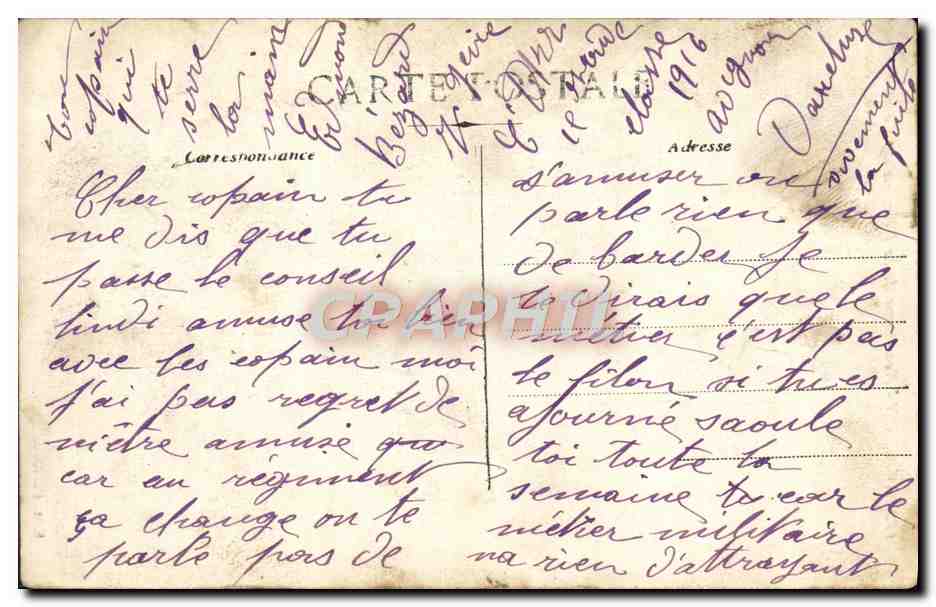 CARTE POSTALE
Correspondance
Adresse
Cher copain tu
me dis que tu
passe le conseil
lindi amuse toi bien
avec les copain moi
j'ai pas regret de
mêtre amusé
car au régiment
ça change on te
parle pas de
s'amuser on
parle rien que
de barder je
te dirais que le
métier c'est pas
le filon si tu es
ajourné saoule
toi toute la
semaine car le
métier militaire
na rien d'attrayant
ton
copain
qui
te
serre
la
main
Edmond
Bézard
classe
1916
avignon
Vaucluse
vivement
la fuite
CPAPHIL